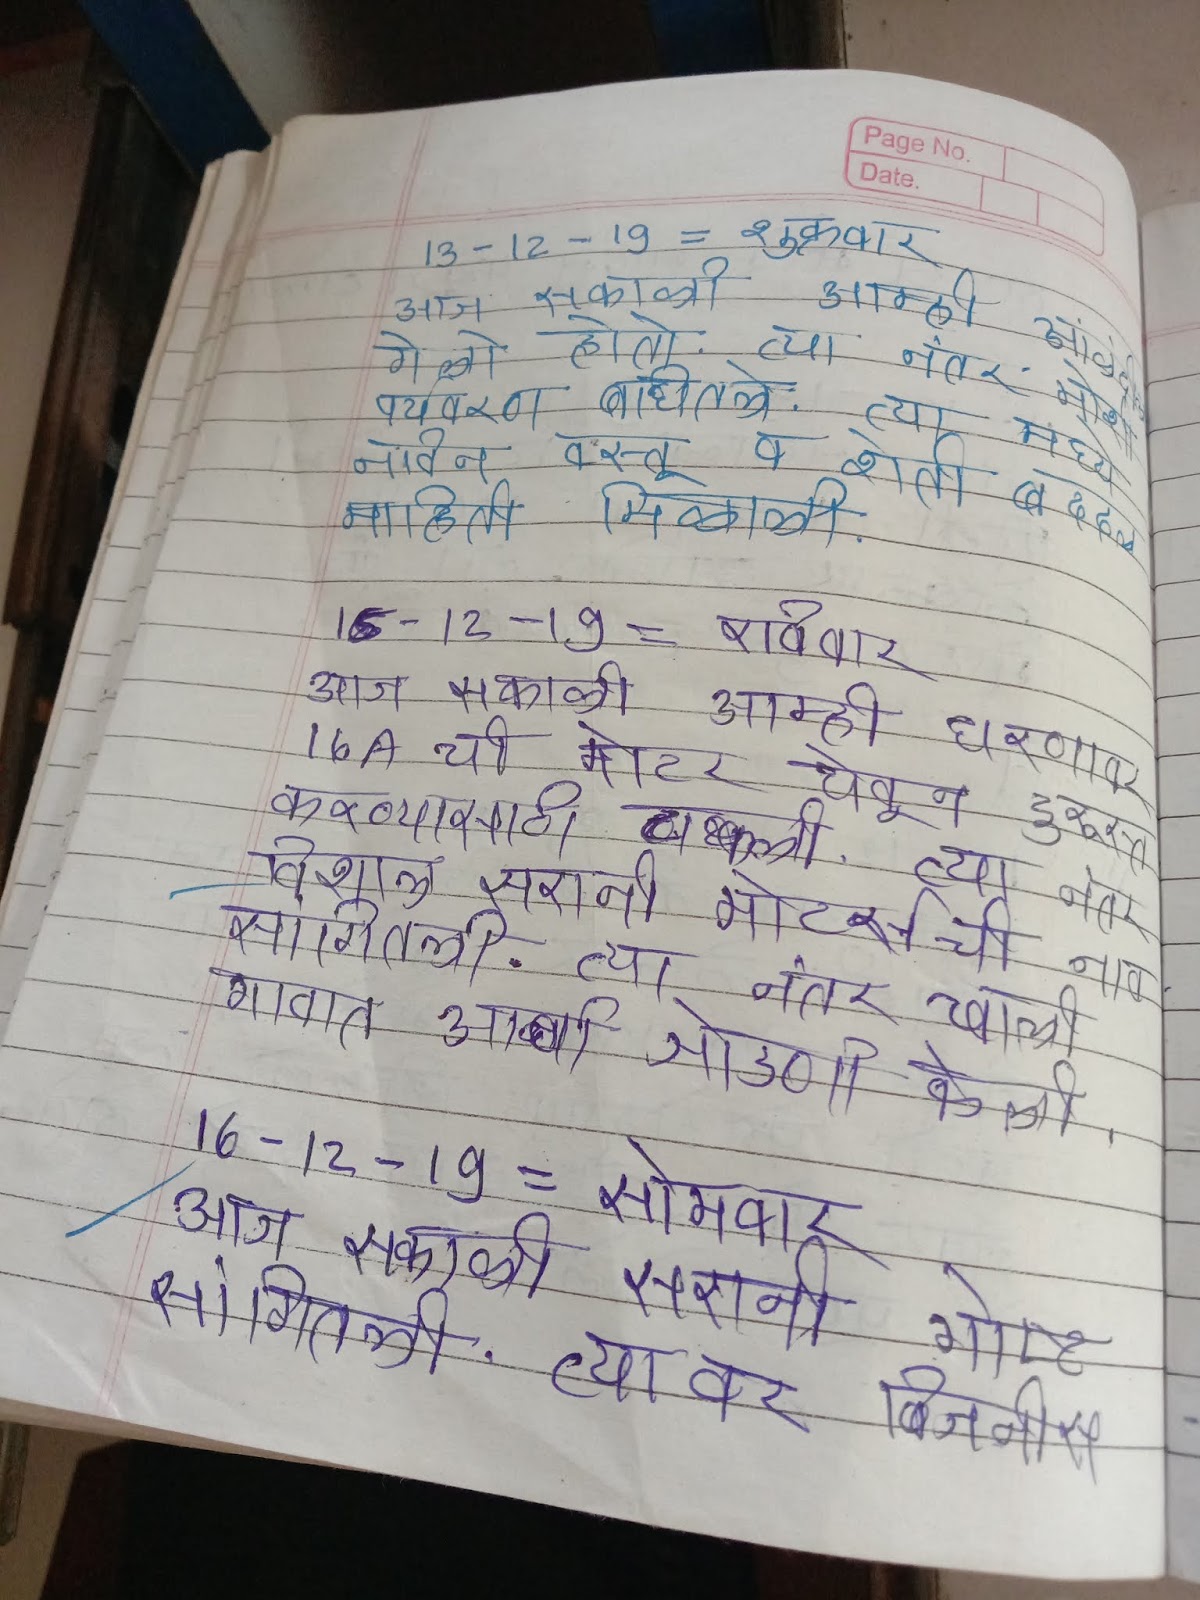 Page No.
Date.
13-12-19 = शुक्रवार
आज सकाळी आम्ही
गेलो होतो. त्या नंतर. मोशी
पर्यवरण बाघीतले. त्या मध्ये
नाविन वस्तू व शेती बददल
माहिती मिळाली.
15-12-19 = रविवार
आज सकाळी आम्ही धरणावर
16A ची मोटर घेवून दुरूस्त
करण्यासाठी. त्या नंतर
विशाल सरानी मोटर्सची नाव
सांगितली. त्या नंतर खाली
गावात जोडणी केली.
16-12-19 = सोमवार
आज सकाळी सरानी गोष्ट
सांगितली. त्या वर बिजनीस